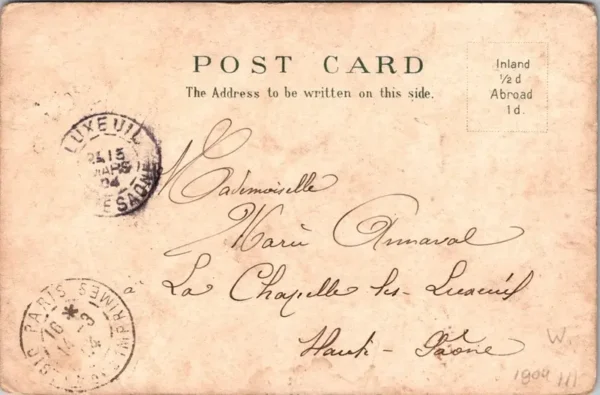 POST CARD
The Address to be written on this side.
Inland
½d
Abroad
1d.
LUXEUIL
15
MARS
04
SAONE
Mademoiselle
Marie Annaval
La Chapelle les-Luxeuil
Haute-Saône
PARIS
IMPRIMÉS
W.
1904